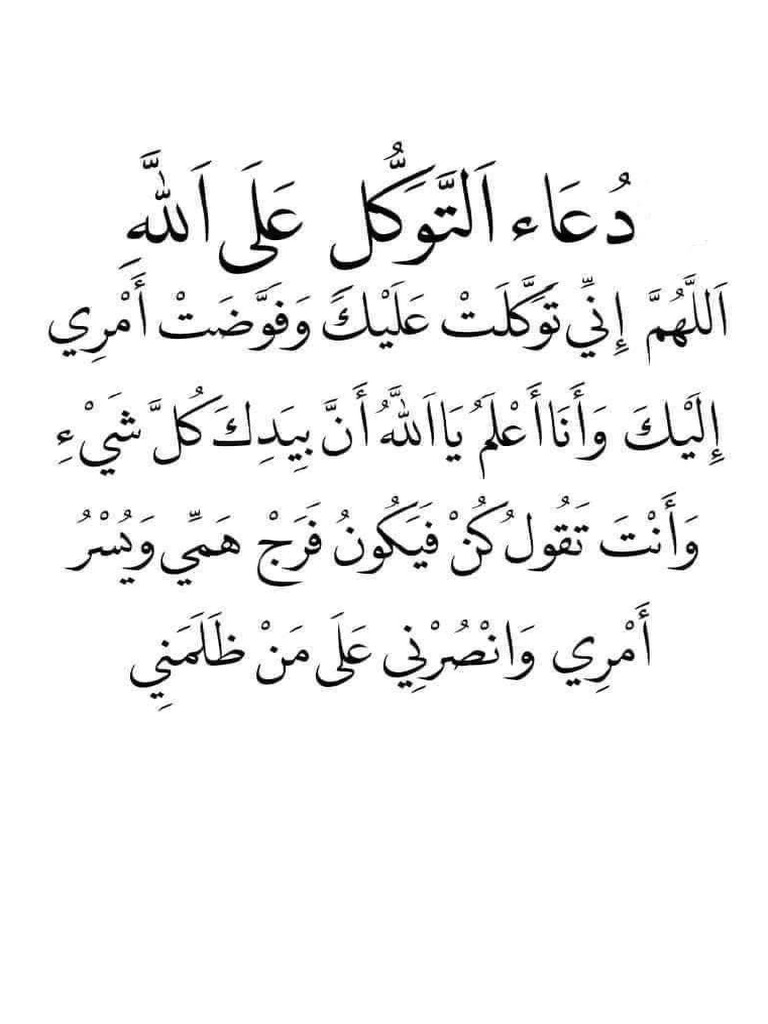 دُعَاء اَلتَّوَكُّل عَلَى اَللَّهِ
اَللَّهُمَّ إِنِّي تَوَكَّلَتْ عَلَيْكَ وَفَوَّضَتْ أَمْرِي
إِلَيْكَ وَأَنَا أَعْلَمُ يَا اَللَّهُ أَنَّ بِيَدِكَ كُلَّ شَيْءِ
وَأَنْتَ تَقُولُ كُنْ فَيَكُونُ فَرَجْ هَمِّي وَيُسْرُ
أَمْرِي وَانْصُرْنِي عَلَى مَنْ ظَلَمَنِي